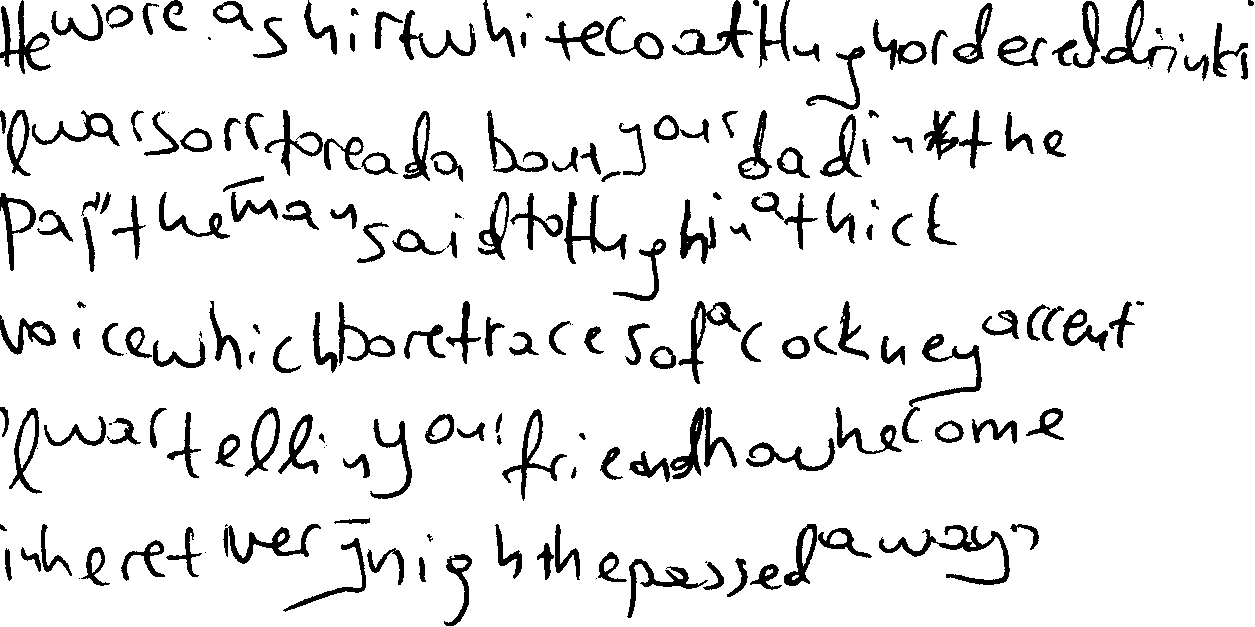 He wore a shirt white coat Hugh ordered drinks
'I was sorr to read about your dad in the
pap" the man said to Hugh in a thick
voice which bore traces of a cockney accent
'I was tellin your friend how he come
in here t very night he passed away"